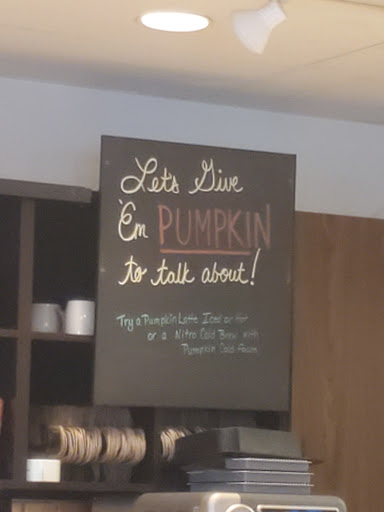 Let's Give
'Em PUMPKIN
to talk about!
Try a Pumpkin Latte Iced or Hot
or a Nitro Cold Brew with
Pumpkin Cold foam